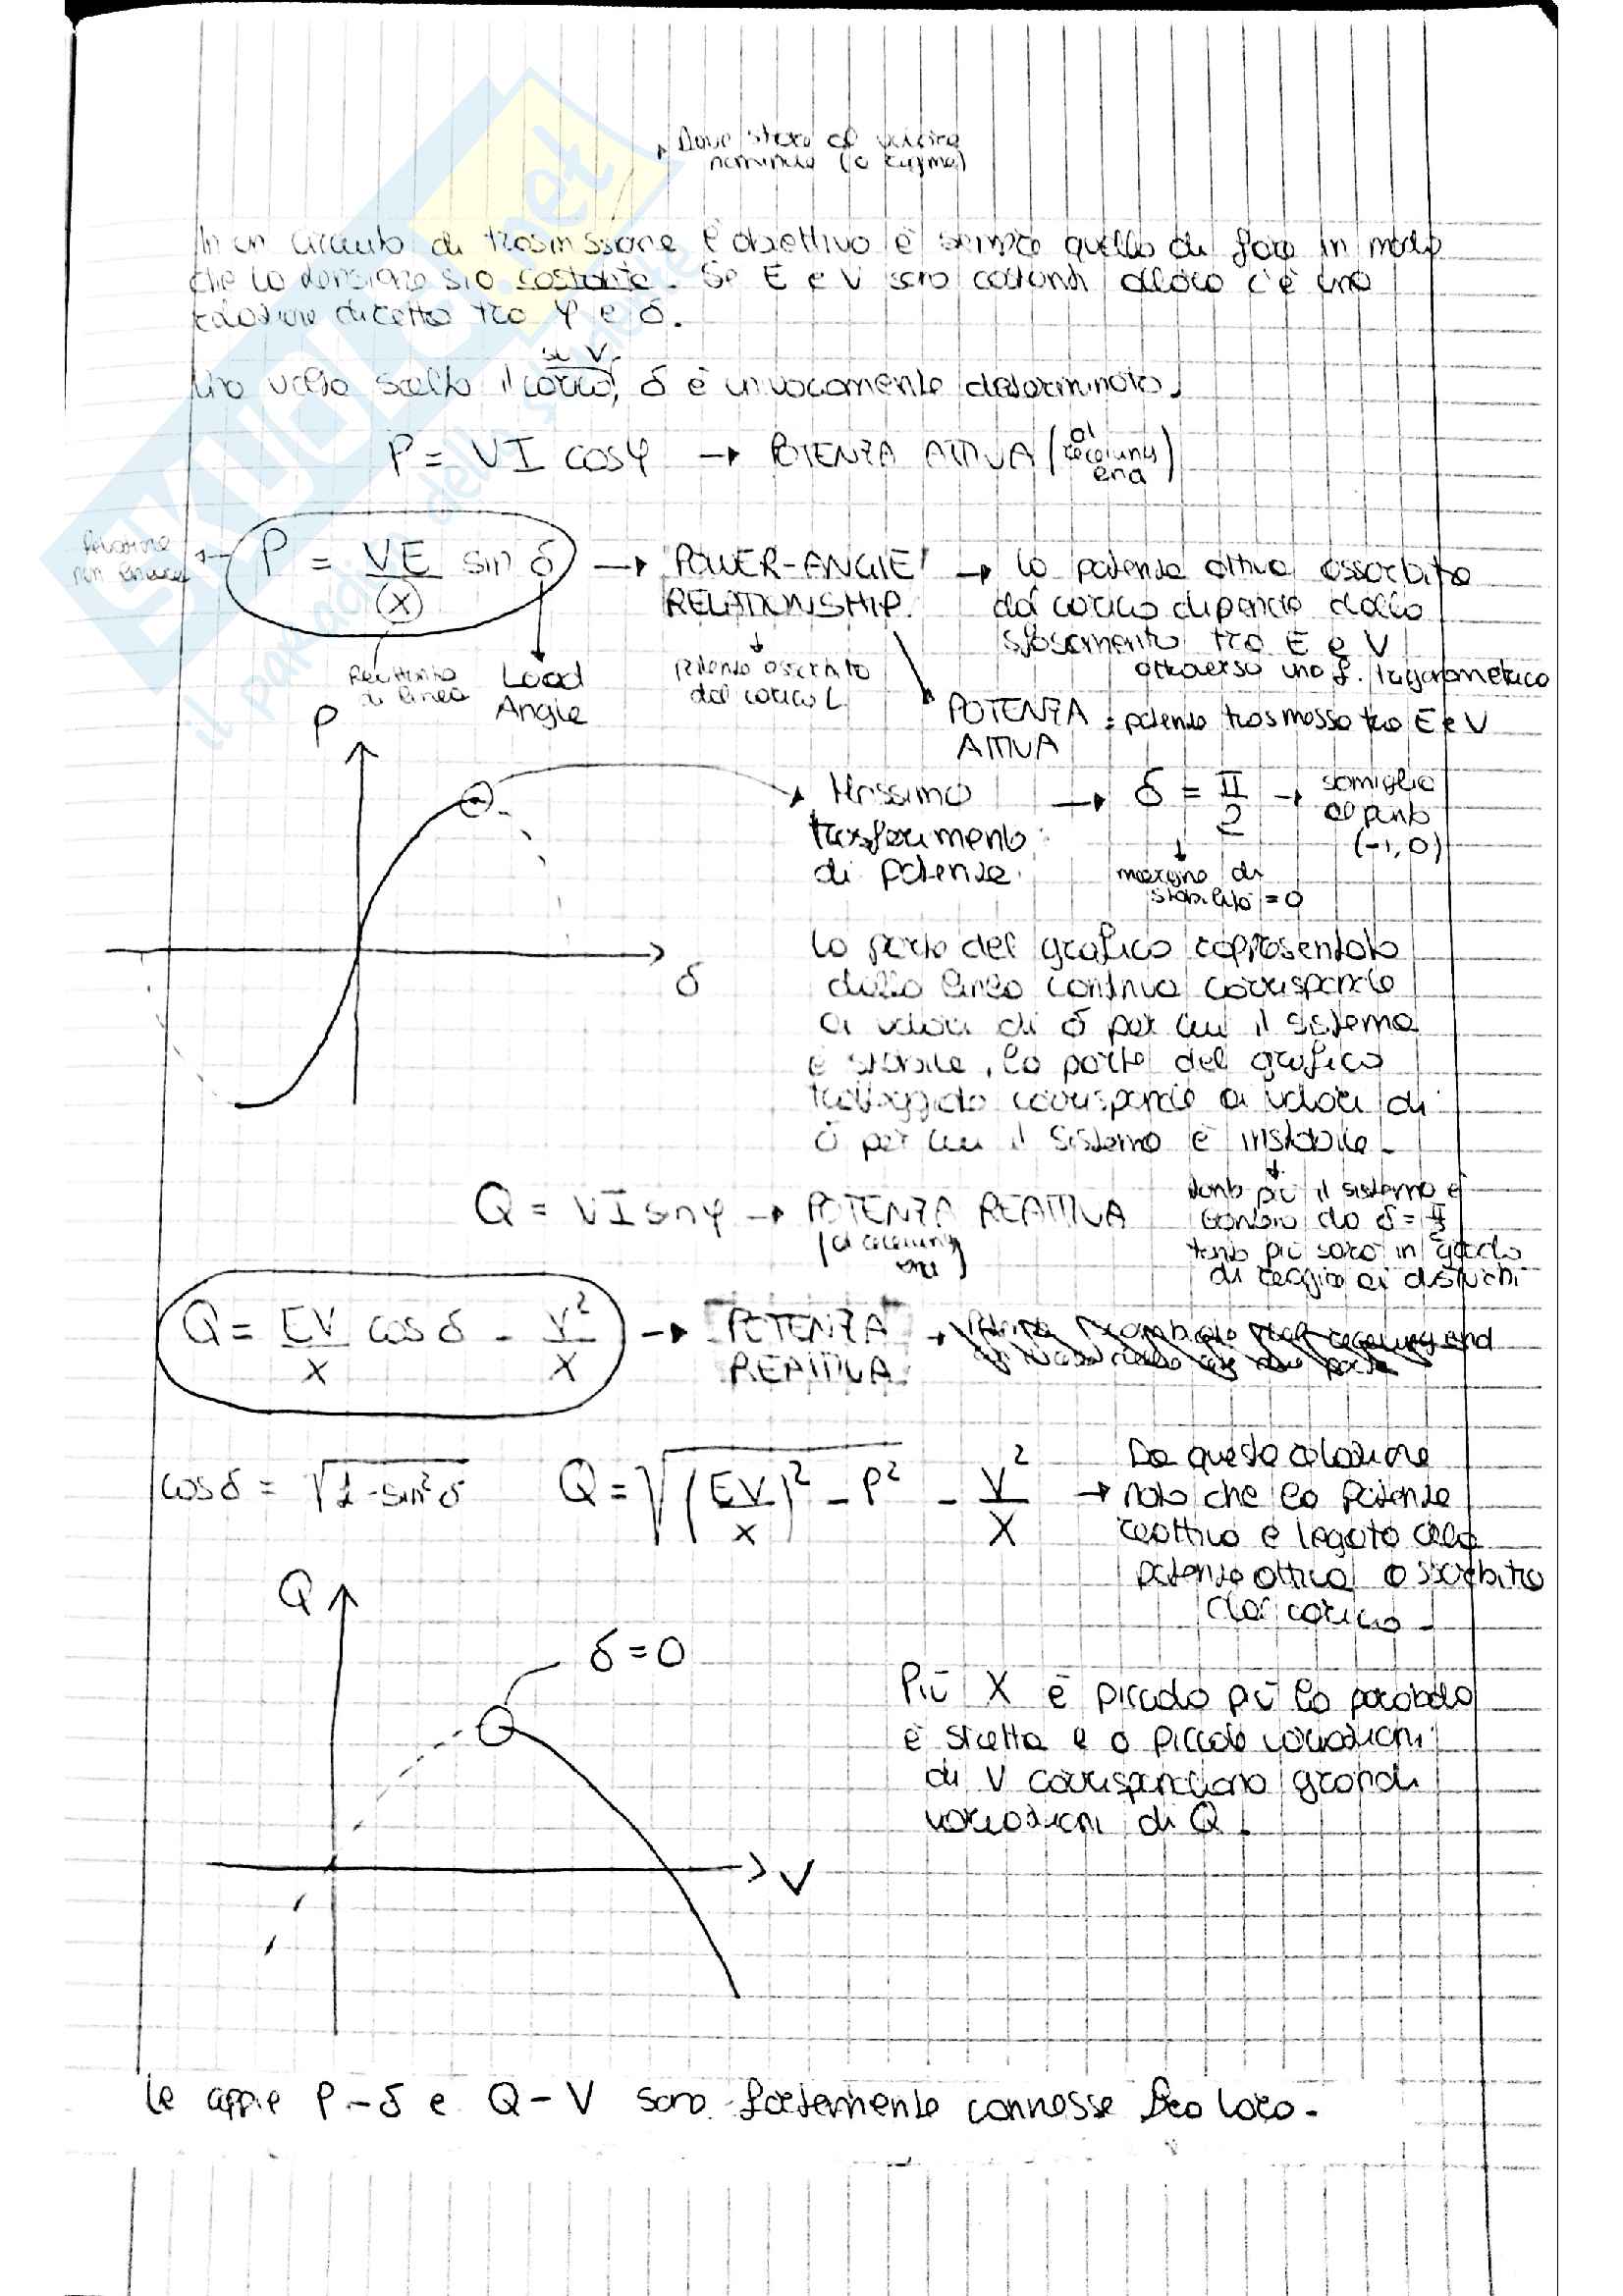 Deve stare al valore
nominale (a regime)
In un circuito di trasmissione l'obiettivo è sempre quello di fare in modo
che la tensione sia costante. Se E e V sono costanti allora c'è una
relazione diretta tra φ e δ.
su V
Una volta scelto il carico, δ è univocamente determinato.
P = VI cosφ → POTENZA ATTIVA (al receiving end)
Relazione
non lineare
P = VE/X sin δ → "POWER-ANGLE" RELATIONSHIP → la potenza attiva assorbita
dal carico dipende dallo
sfasamento tra E e V
attraverso una f. trigonometrica
Reattanza
di linea
Load
Angle
potenza assorbita
dal carico L
POTENZA ATTIVA = potenza trasmessa tra E e V
P
δ
Massimo
trasferimento
di potenza
→ δ = π/2 → somiglia
al punto
(-1, 0)
margine di
stabilità = 0
La parte del grafico rappresentata
dalla linea continua corrisponde
ai valori di δ per cui il sistema
è stabile, la parte del grafico
tratteggiata corrisponde ai valori di
δ per cui il sistema è instabile.
tanto più il sistema è
lontano da δ = π/2
tanto più sarà in grado
di reagire ai disturbi
Q = VI sinφ → POTENZA REATTIVA
(al receiving
end)
Q = EV/X cos δ - V²/X → POTENZA
REATTIVA
receiving end
cosδ = √(1-sin²δ) Q = √((EV/X)² - P²) - V²/X → Da questa relazione
noto che la potenza
reattiva è legata alla
potenza attiva assorbita
dal carico.
Q
δ=0
V
Più X è piccolo più la parabola
è stretta e a piccole variazioni
di V corrispondono grandi
variazioni di Q.
Le coppie P-δ e Q-V sono fortemente connesse fra loro.
SKUOLA.net
il paradiso dello studente